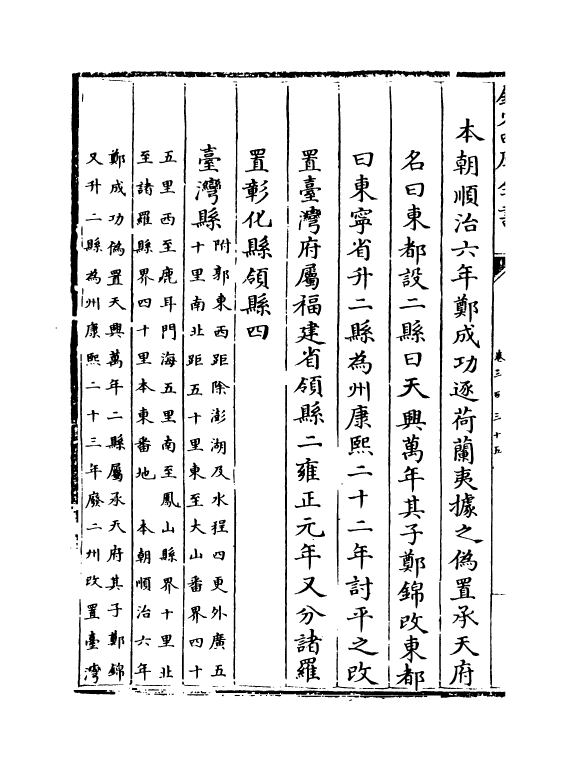 本朝順治六年鄭成功逐荷蘭夷據之偽置承天府
名曰東都設二縣曰天興萬年其子鄭錦改東都
曰東寧省升二縣為州康熙二十二年討平之改
置臺灣府屬福建省領縣二雍正元年又分諸羅
置彰化縣領縣四
臺灣縣附郭東西距除澎湖及水程四更外廣五
十里南北距五十里東至大山番界四十
五里西至鹿耳門海五里南至鳳山縣界十里北
至諸羅縣界四十里本東番地 本朝順治六年
鄭成功偽置天興萬年二縣屬承天府其子鄭錦
又升二縣為州康熙二十三年廢二州改置臺灣
卷三百三十五